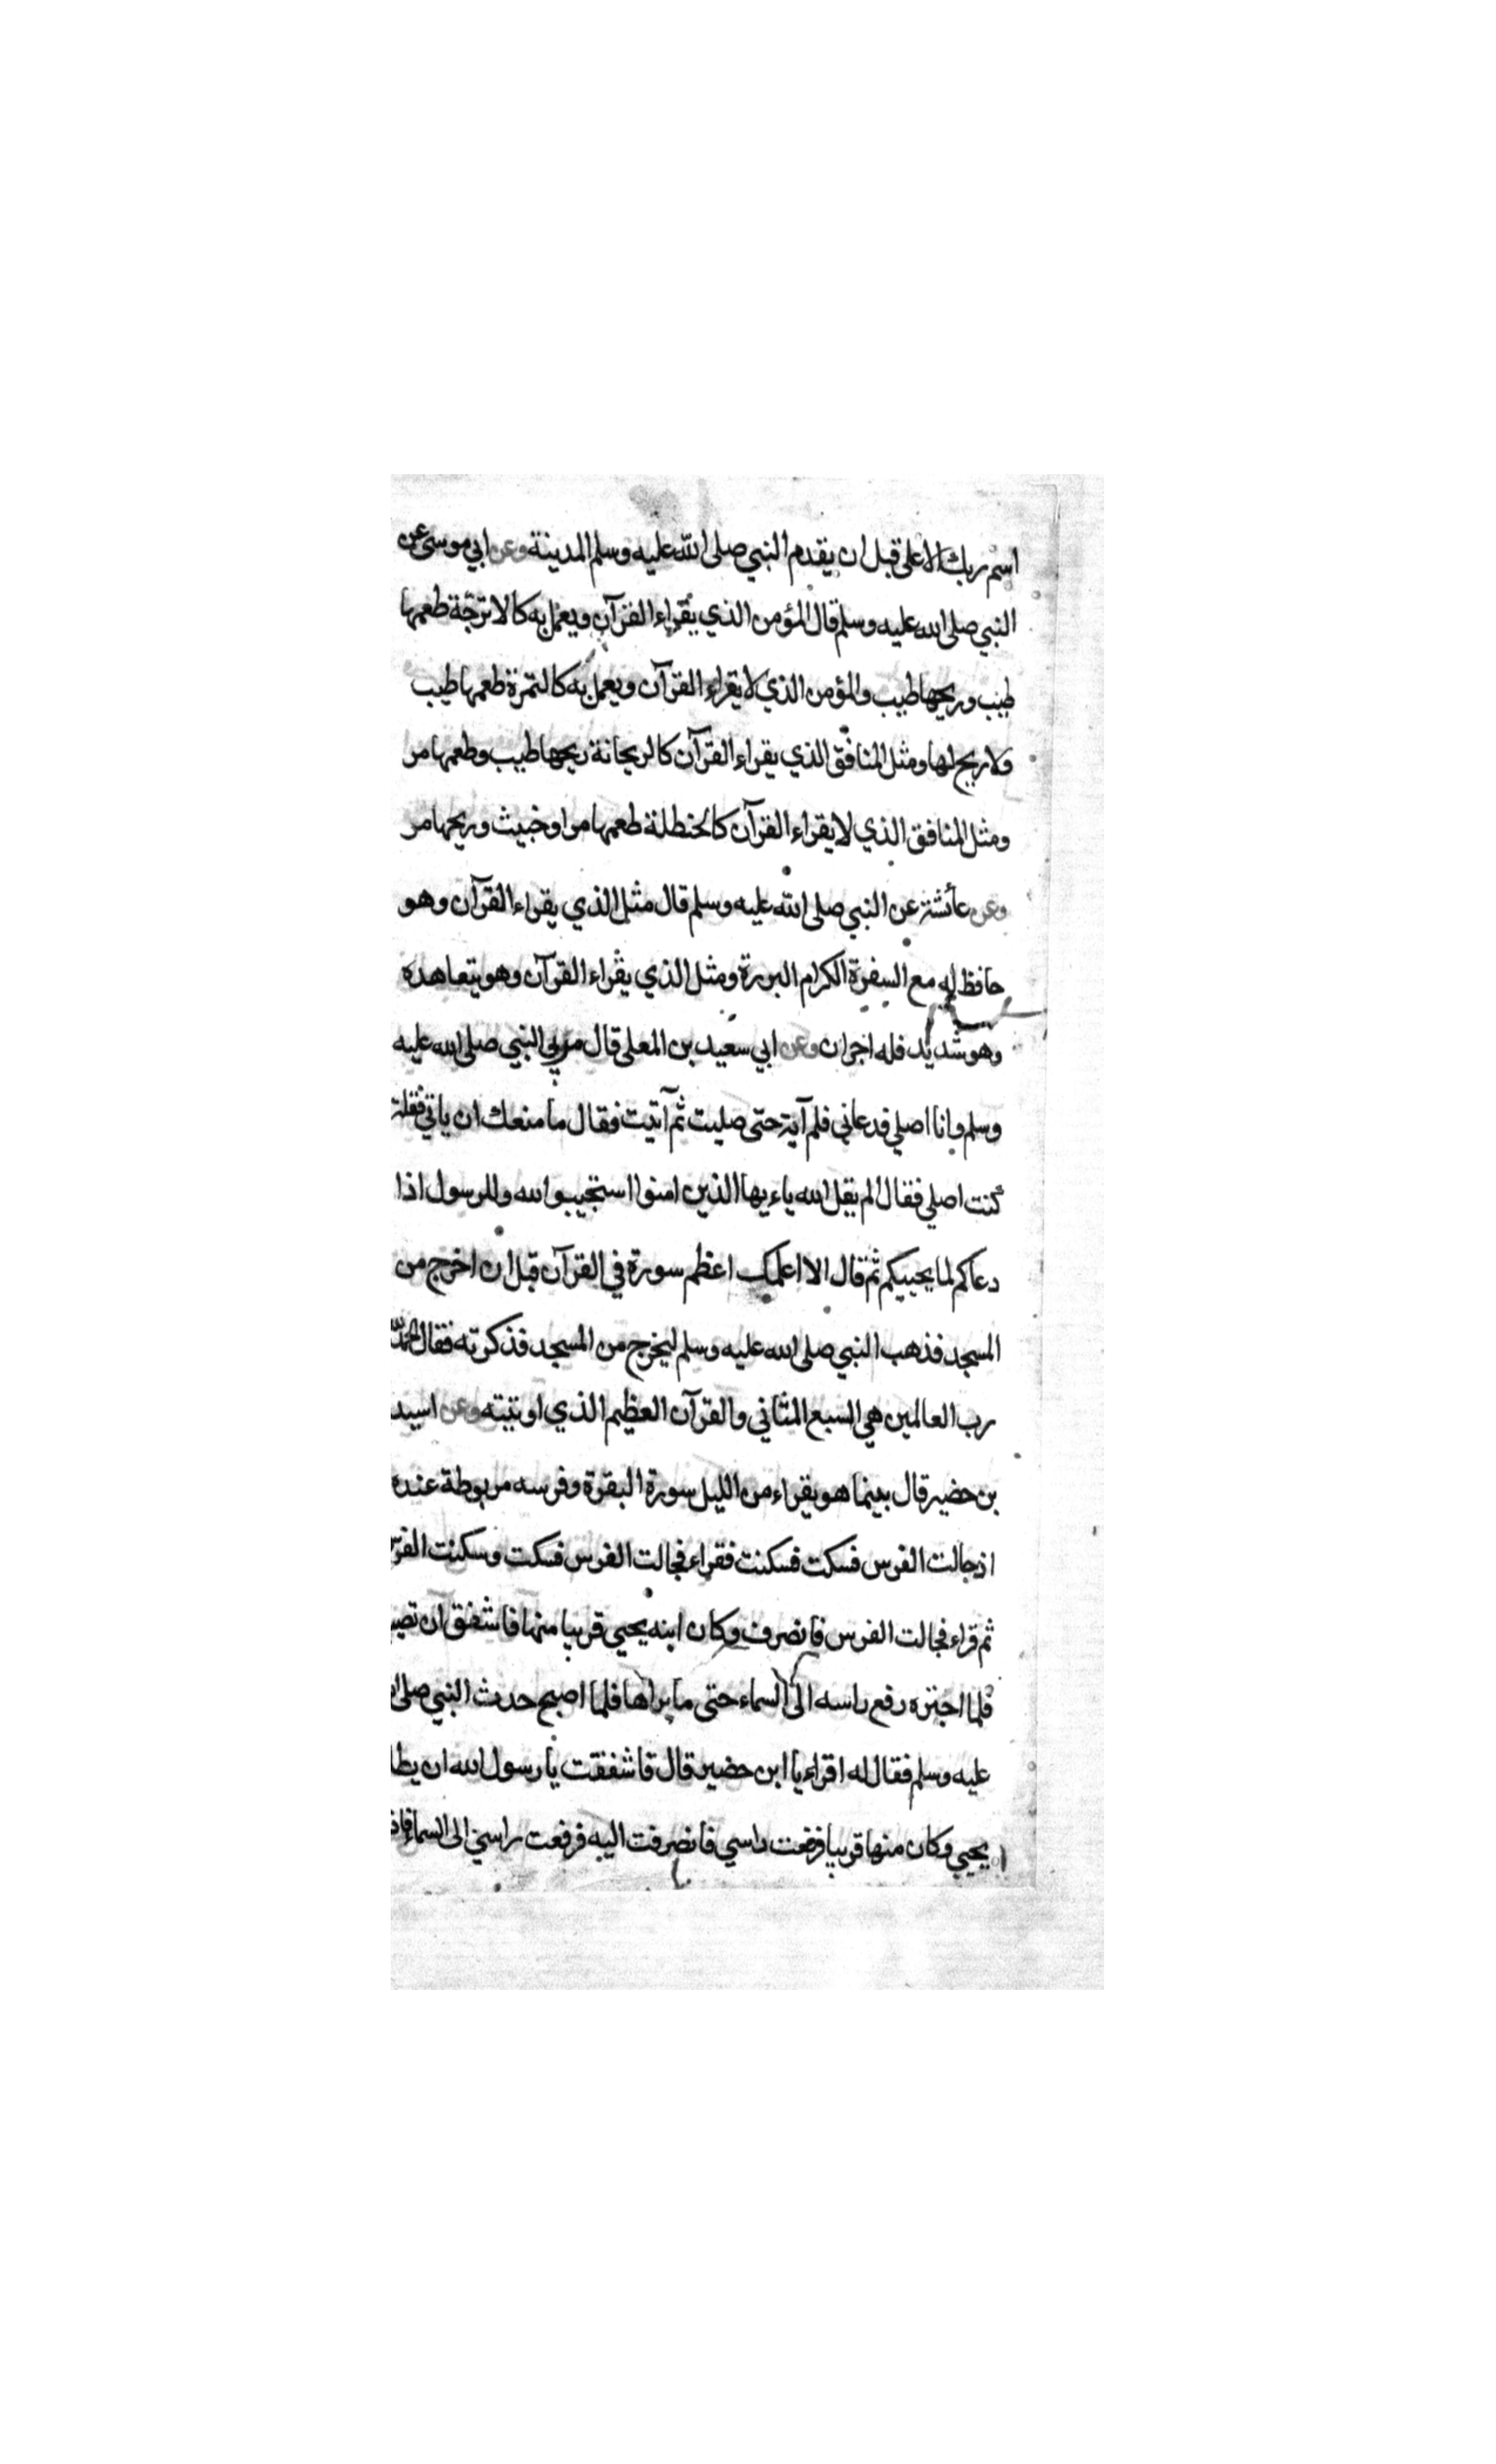 اسم ربك الاعلى قبل ان يقدم النبي صلى الله عليه وسلم المدينة وعن ابي موسى عن
النبي صلى الله عليه وسلم قال المؤمن الذي يقراء القرآن ويعمل به كالاترجّة طعمها
طيب وريحها طيب والمؤمن الذي لا يقراء القرآن ويعمل به كالتمرة طعمها طيب
ولا ريح لها ومثل المنافق الذي يقراء القرآن كالريحانة ريحها طيب وطعمها مر
ومثل المنافق الذي لا يقراء القرآن كالحنطلة طعمها مر او خبيث وريحها مر
وعن عائشة عن النبي صلى الله عليه وسلم قال مثل الذي يقراء القرآن وهو
حافظ له مع السفرة الكرام البررة ومثل الذي يقراء القرآن وهو يتعاهده
وهو شديد فله اجران وعن ابي سعيد بن المعلى قال مر بي النبي صلى الله عليه
وسلم وانا اصلي فدعاني فلم آية حتى صليت ثم آتيت فقال ما منعك ان ياتي فقلة
كنت اصلي فقال الم يقل الله ياءيها الذين امنوا استجيبوا لله وللرسول اذا
دعاكم لما يحييكم ثم قال الا اعلمك اعظم سورة في القرآن قبل ان اخرج من
المسجد فذهب النبي صلى الله عليه وسلم ليخرج من المسجد فذكرته فقال الحمد لله
رب العالمين هي السبع المثاني والقرآن العظيم الذي اوتيته وعن اسيد
بن حضير قال بينما هو يقراء من الليل سورة البقرة وفرسه مربوطة عنده
اذ جالت الفرس فسكت فسكنت فقراء فجالت الفرس فسكت وسكنت الفرس
ثم قراء فجالت الفرس فانصرف وكان ابنه يحيي قريبا منها فاشفق ان تصي
فلما اجتره رفع راسه الى السماء حتى ما يراها فلما اصبح حدث النبي صلى ال
عليه وسلم فقال له اقراء يا ابن حضير قال فاشفقت يا رسول الله ان يطا
يحيي وكان منها قريبا فرفعت راسي فانصرفت اليه فرفعت راسي الى السماء فاذ